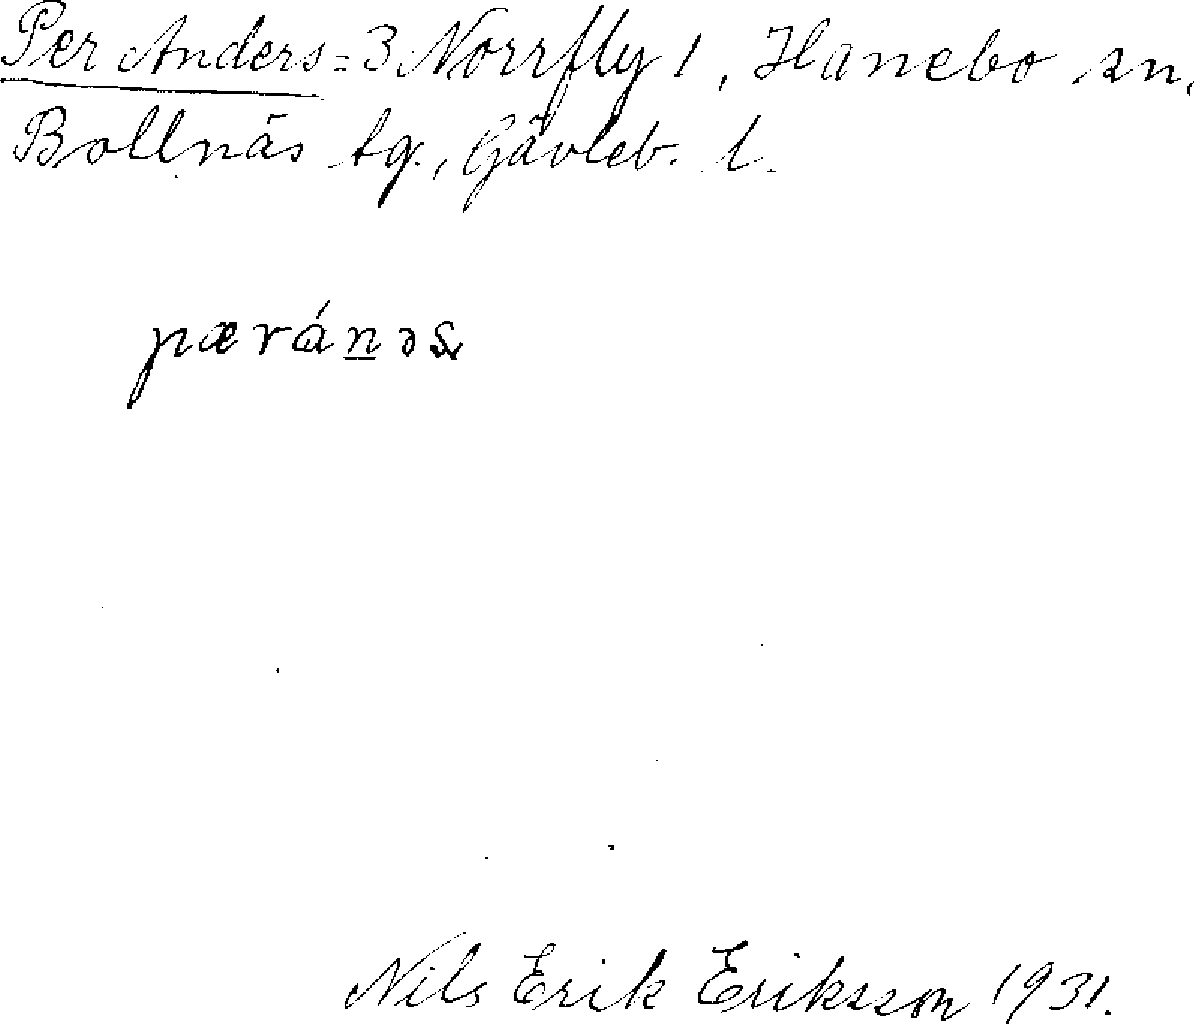 Per Anders = 3 Norrfly 1, Hanebo sn,
Bollnäs tg., Gävleb. l.
pæránəs
Nils Erik Eriksson 1931.